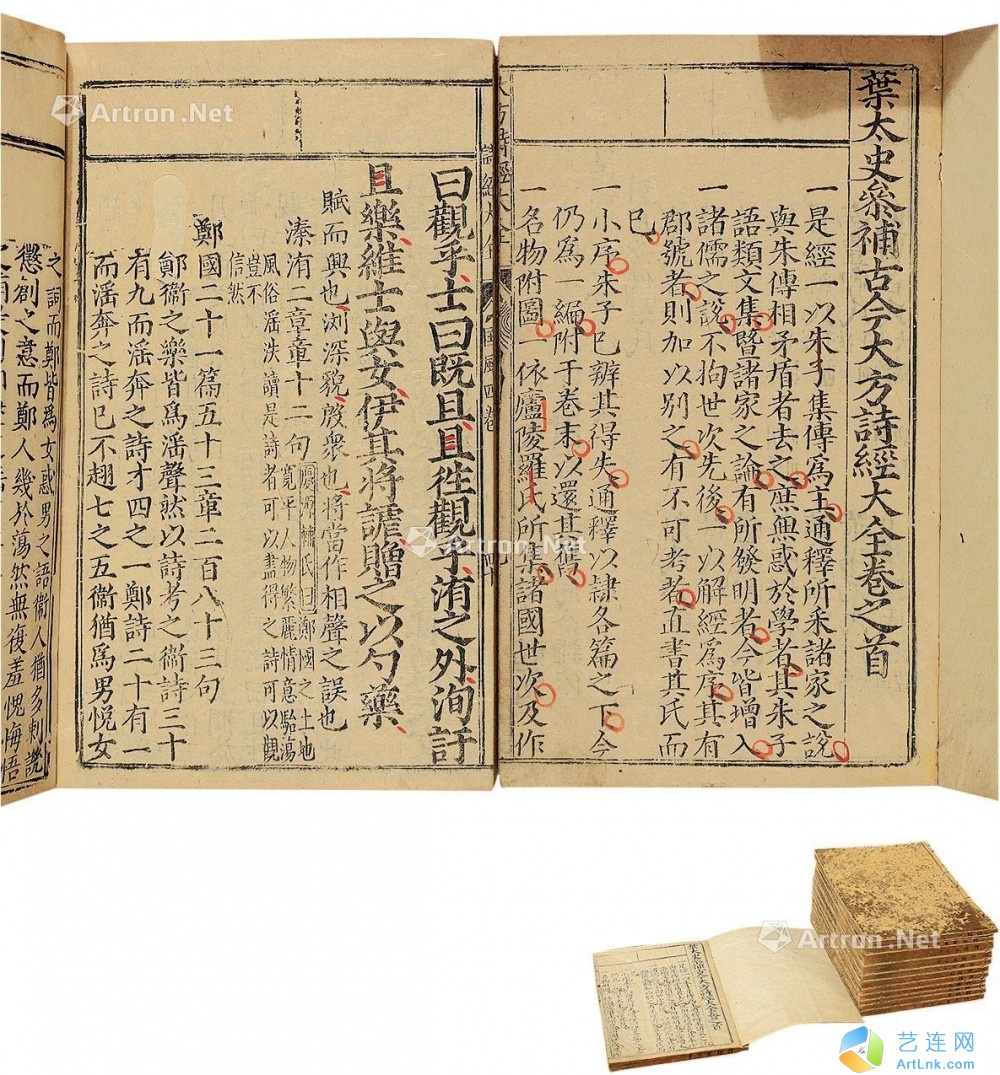 葉太史參補古今大方詩經大全卷之首
一是經一以朱子集傳為主通釋所采諸家之說
與朱傳相矛盾者去之庶無惑於學者其朱子
語類文集暨諸家之論有所發明者今皆增入
一諸儒之說不拘世次先後一以解經為序其有
郡號者則加以別之有不可考者直書其氏而
已
一小序朱子已辨其得失通釋以隷各篇之下今
仍為一編附于卷末以還其舊
一名物附圖一依廬陵羅氏所集諸國世次及作
詩經大全
國風四卷
曰觀乎士曰既且且徃觀乎洧之外洵訏
且樂維士與女伊其將謔贈之以勺藥
賦而興也瀏深貌殷衆也將當作相聲之誤也
溱洧二章章十二句
曰鄭國之土地
寬平人物繁麗情意駘蕩
風俗淫泆讀是詩者可以盡得之詩可以觀
豈不
信然
鄭國二十一篇五十三章二百八十三句
鄭衞之樂皆爲淫聲然以詩考之衞詩三十
有九而淫奔之詩才四之一鄭詩二十有一
而淫奔之詩已不翅七之五衞猶爲男悅女
之詞而鄭皆爲女惑男之語衞人猶多刺譏
懲創之意而鄭人幾於蕩然無復羞愧悔悟
Artron.Net
Artron.Net
Artron.Net
葉太史參補古今大方詩經大全卷之首
艺连网
ArtLnk.com